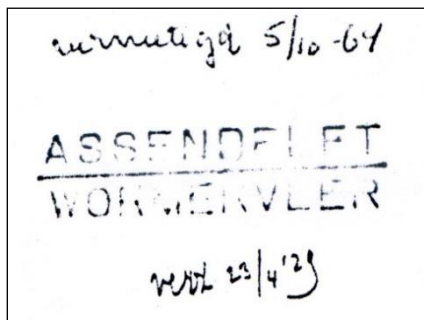 vernietigd 5/10-64
ASSENDELFT
WORMERVEER
verz 23/4 '29